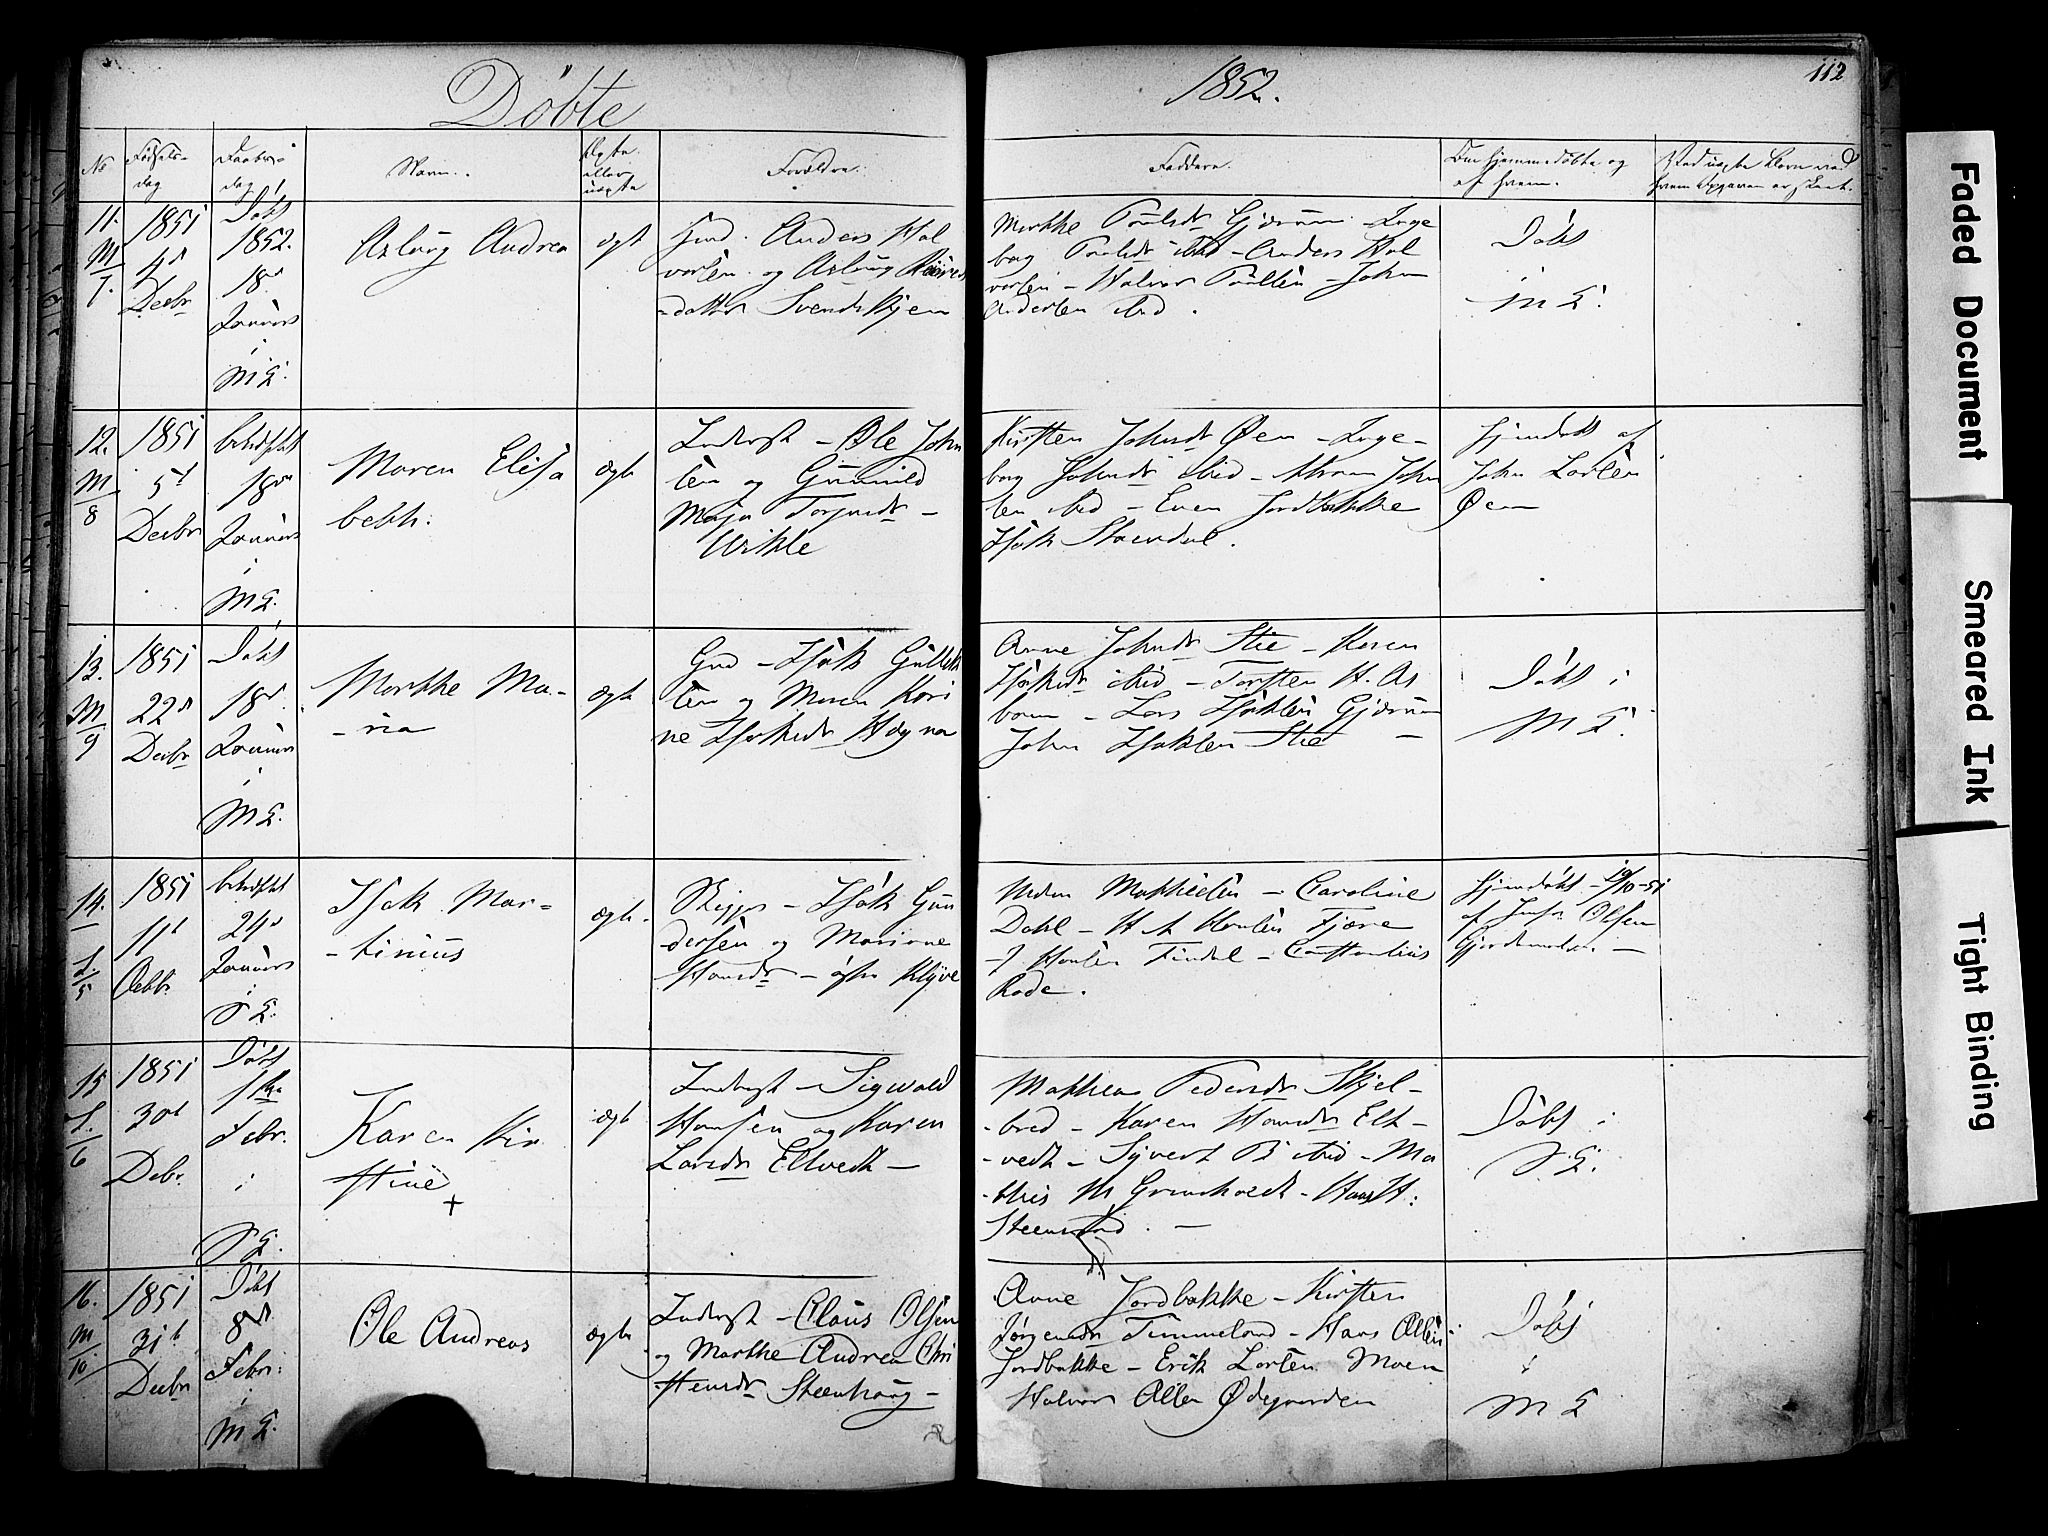 Döbte
1852.
112
No
Fødsels-
dag
Daabens
dag
Navn.
Ægte
eller
uægte
Forældre.
Faddere.
Om hjemmedøbte og
af hvem.
Ved uægte Børn ved
hvem Opgaven er skeet.
11.
M/7.
1851
4d
Decbr
Döbt
1852.
18d
Januar
i
M E.
Aslaug Andrea
ægt
Gmd. Anders Hal
vorsen og Aslaug
datter Svendskjem
Marthe Poulsdr Gjerum Inge
borg Poulsdr ibid – Anders Hal
vorsen – Halvor Poulsen – John
Andersen ibid.
Döbt
i
M E.
12.
M/8
1851
5d
Decbr
bekræftet
18de
Januar
i
M E.
Maren Elisa
beth.
ægte
Inderst – Ole John
sen og Gunnild
Maja Torjusdr –
Wikle
Kirsten Johnsdr Øen – Inge-
borg Johnsdr ibid – Abram John
sen ibid – Even Jordbække
Isak Stoendal.
hjemdøbt af
John Larsen
Øen
13.
M/9
1851
22d
Decbr
Döbt
18d
Januar
i
M E.
Marthe Ma-
-ria
ægte
Gmd – Isak Gullek
sen og Maren Kari
ne Isaksdr Høgna
Anne Johnsdr Stie – Karen
Isaksdr ibid – Torsten H. As
bom – Lars Isaksen Gjerum
John Isaksen Stie –
Döbt i
M E.
14.
S./5
1851
11t
Octbr.
bekræftet
24d
Januar
i
S E.
Isak Mar-
-tinius
ægte
Skipper – Isak Gun
dersen og Mariane
Hansdr – østre Klyve
Caroline
Dahl – H A Hansen Fjære
– J Hansen Findal – Constantius
Rode.
hjemdøbt – 19/10-51
af Jmfr Olsen
Gjordemoder. –
15
S./6
1851
30t
Decbr.
Döbt
1ste
Febr.
i
S E.
Karen Kir
stine
+
ægte
Inderst – Sigwald
Hansen og Karen
Larsdr Eltvedt –
Mathea Pedersdr Skjel-
-bred – Karen Hansdr Elt-
-vedt – Syvert B ibid – Ma
-this M Grindhoedt – Hans H:
Steensrod. –
Döbt i
S E.
16.
M/10
1851
31t
Decbr
Döbt
8de
Febr:
i
M E.
Ole Andreas
ægte
Inderst – Claus Olsen
og Marthe Andrea Chri
stensdr Steenhaug –
Anne Jordbække – Kirsten
Jørgensdr Timmeland – Hans Olsen
Jordbække – Erik Larsen Moen
Halvor Olsen Ødegaarden
Döbt
i
M E
Faded Document
Smeared Ink
Tight Binding